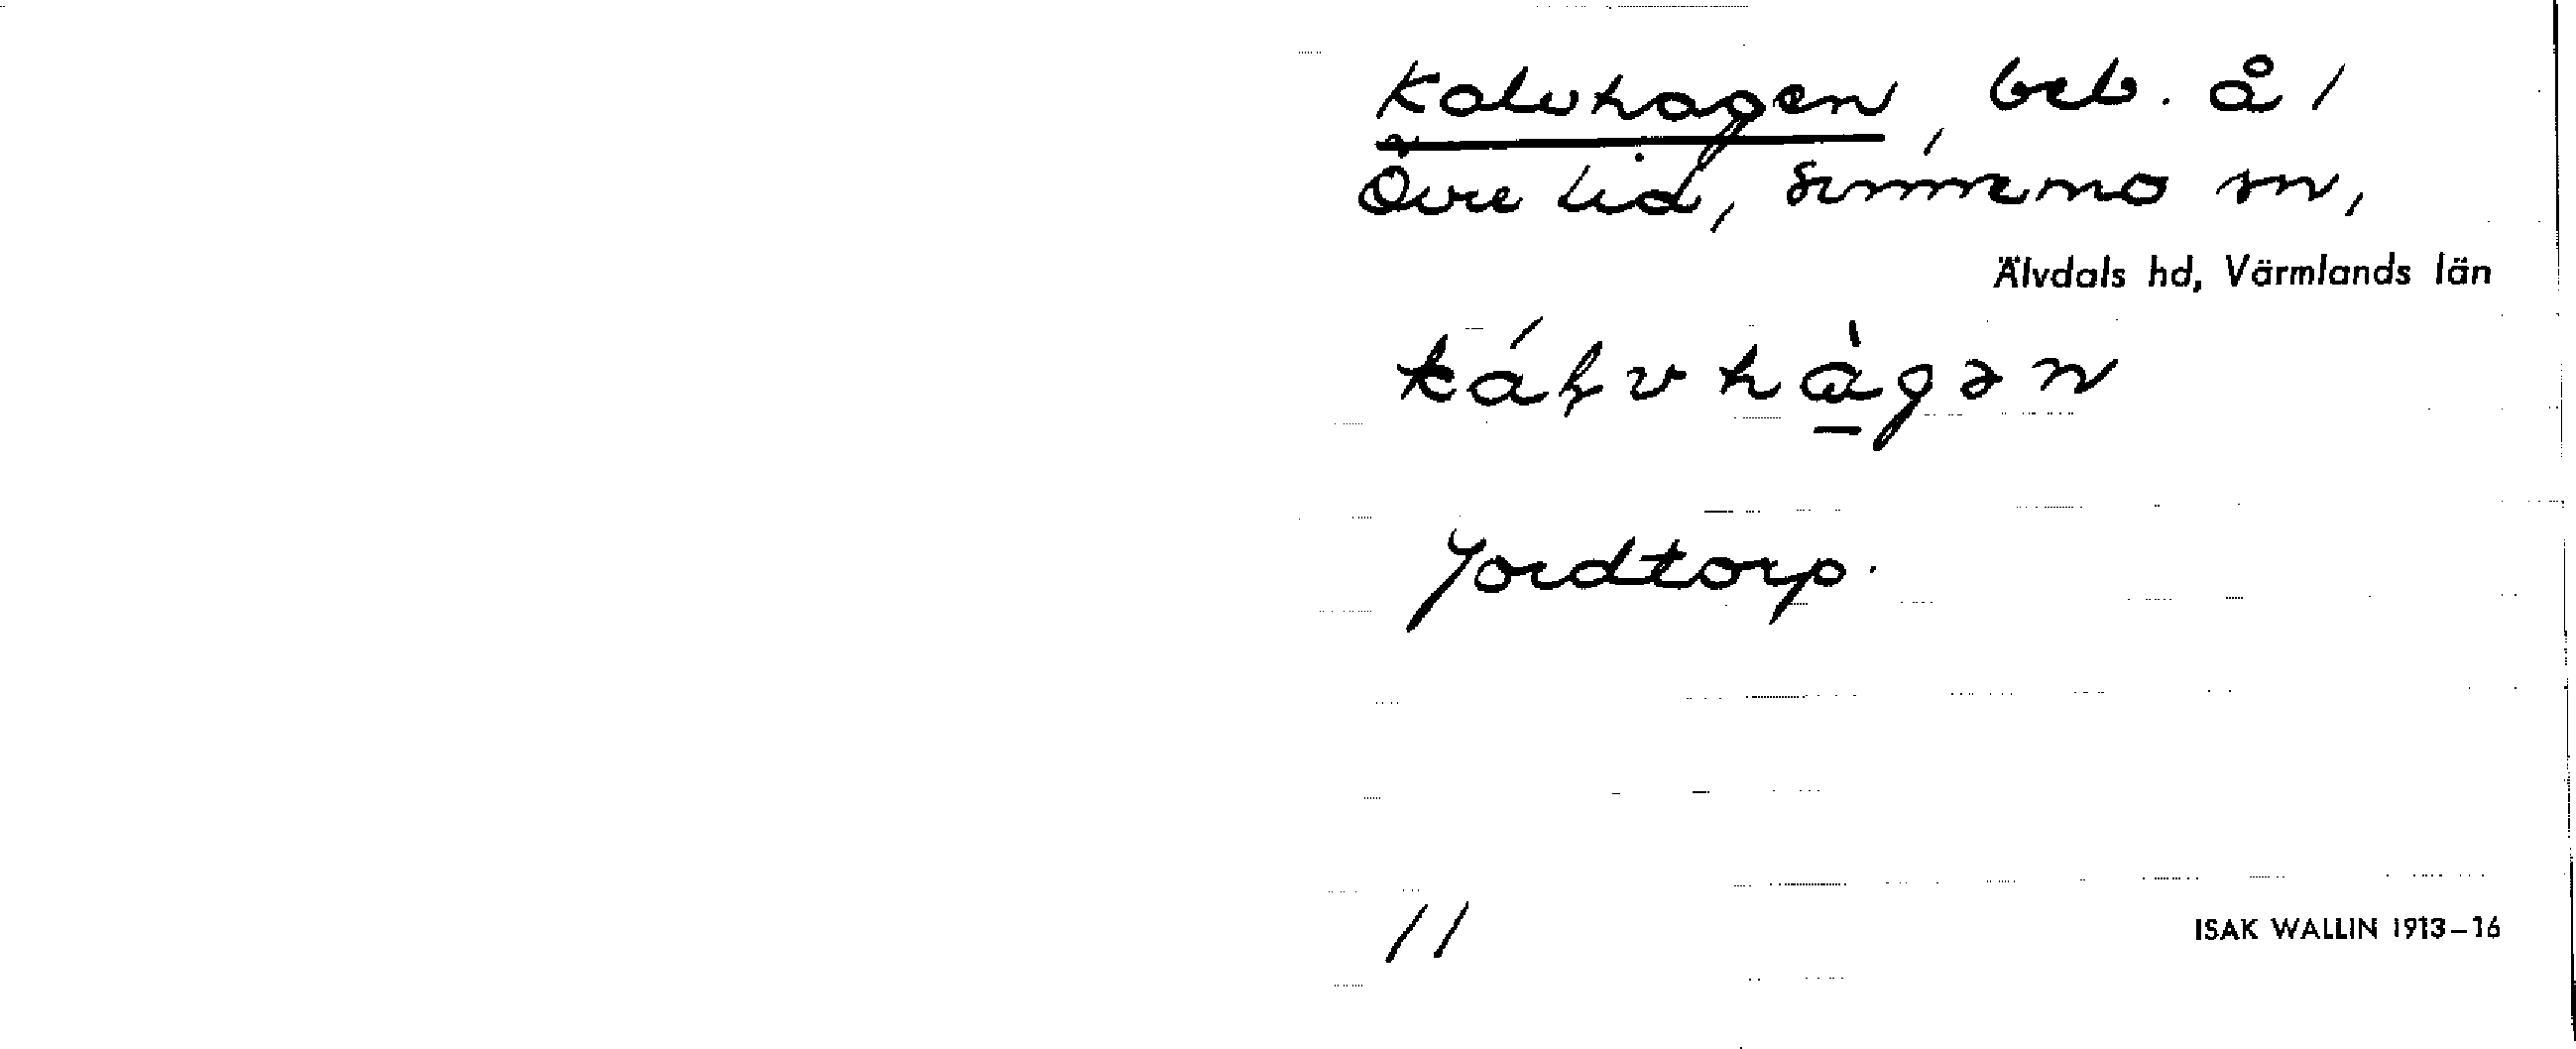 Kalvhagen, beb. å /
Övre Lid, Sunnemo sn,
Älvdals hd, Värmlands län
káɫvhàgən
Jordtorp.
11
ISAK WALLIN 1913–16